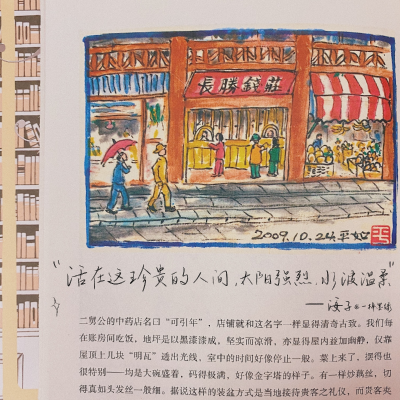 長勝錢莊
2009.10.24.平如
"活在这珍贵的人间,太阳强烈,水波温柔"
二舅公的中药店名曰"可引年",店铺就和这名字一样显得清奇古致。我们每
在账房间吃饭,地坪是以黑漆漆成,坚实而凉滑,亦显得屋内益加幽静,仅靠
屋顶上几块"明瓦"透出光线,室中的时间好像停止一般。菜上来了,摆得也
很特别——均是大碗盛着,码得极满,好像金字塔的样子。有一样炒藕丝,切
得真如头发丝一般细。据说这样的装盆方式是当地接待贵客之礼仪,而贵客夹